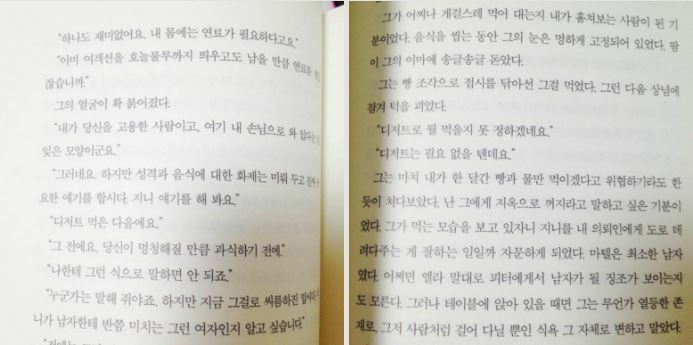 "하나도 재미없어요. 내 몸에는 연료가 필요하다고요."
"이미 여객선을 호놀룰루까지 띄우고도 남을 만큼 연료를
잖습니까."
그의 얼굴이 확 붉어졌다.
"내가 당신을 고용한 사람이고, 여기 내 손님으로 와 있다는
잊은 모양이군요."
"그러네요. 하지만 성격과 음식에 대한 화제는 미뤄 두고
요한 얘기를 합시다. 지니 얘기를 해 봐요."
"디저트 먹은 다음에요."
"그 전에요. 당신이 멍청해질 만큼 과식하기 전에."
"나한테 그런 식으로 말하면 안 되죠."
"누군가는 말해 줘야죠. 하지만 지금 그걸로 씨름하진
니가 남자한테 반쯤 미치는 그런 여자인지 알고 싶습니다."
그가 어찌나 게걸스레 먹어 대는지 내가 훔쳐보는 사람이 된 기
분이었다. 음식을 씹는 동안 그의 눈은 멍하게 고정되어 있었다. 땀
이 그의 이마에 송글송글 돋았다.
그는 빵 조각으로 접시를 닦아선 그걸 먹었다. 그런 다음 상념에
잠겨 턱을 괴었다.
"디저트로 뭘 먹을지 못 정하겠네요."
"디저트는 필요 없을 텐데요."
그는 마치 내가 한 달간 빵과 물만 먹이겠다고 위협하기라도 한
듯이 쳐다보았다. 난 그에게 지옥으로 꺼지라고 말하고 싶은 기분이
었다. 그가 먹는 모습을 보고 있자니 지니를 내 의뢰인에게 도로 데
려다주는 게 잘하는 일일까 자문하게 되었다. 마텔은 최소한 남자
였다. 어쩌면 엘라 말대로 피터에게서 남자가 될 징조가 보이는지
도 모른다. 그러나 테이블에 앉아 있을 때면 그는 무언가 열등한 존
재로, 그저 사람처럼 걸어 다닐 뿐인 식욕 그 자체로 변하고 말았다.